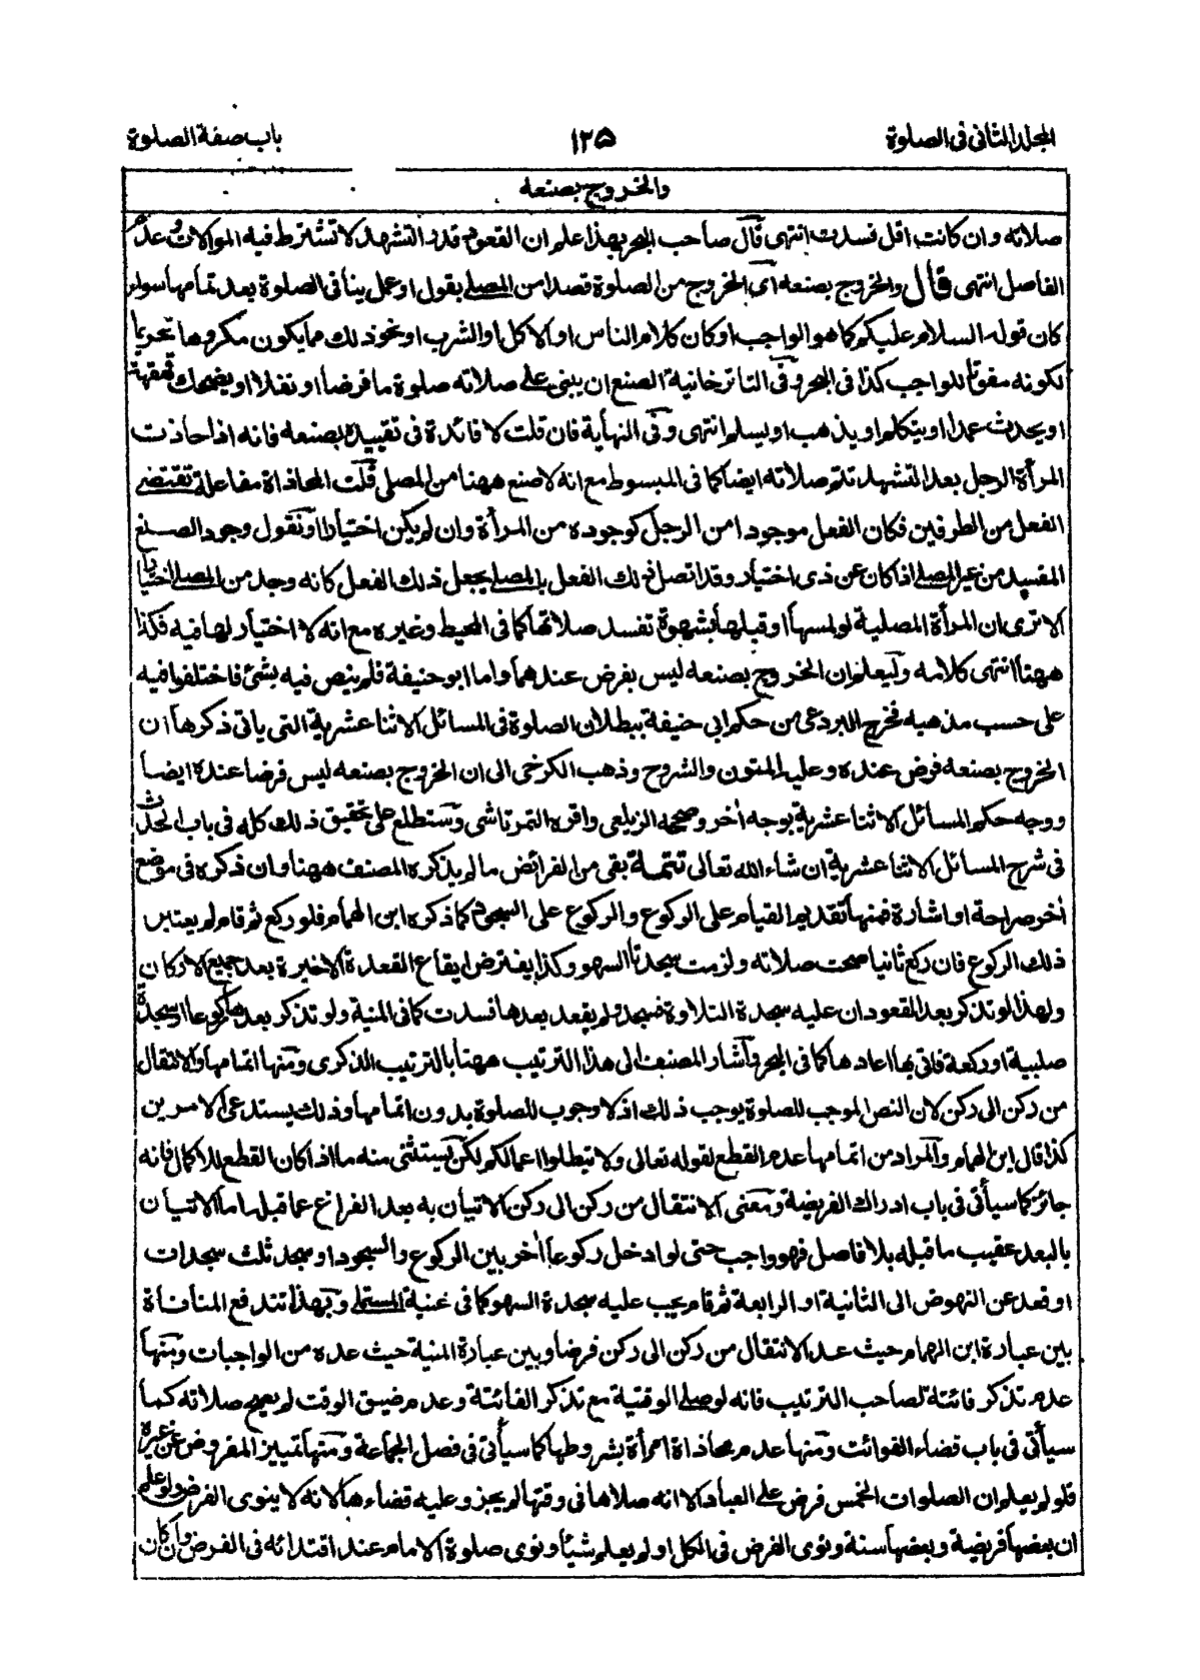 المجلد الثانی فی الصلوة
۱۲۵
باب صفة الصلوة
والخروج بصنعه
صلاته وان كانت اقل فسدت انتهى قال صاحب البحر بهذا علم ان القعود قدر التشهد لا تشترط فيه الموالاة وعدم
الفاصل انتهى قال والخروج بصنعه اى الخروج من الصلوة قصدا من المصلى بقول او عمل ينافى الصلوة بعد تمامها سواء
كان قوله السلام عليكم كما هو الواجب او كان كلام الناس او الاكل او الشرب او نحو ذلك مما يكون مكروها تحريما
لكونه مفوتا للواجب كذا فى البحر وفى التاترخانية الصنع ان يبنى على صلاته صلوة ما فرضا او نفلا او يضحك قهقهة
او يحدث عمدا او يتكلم او يذهب او يسلم انتهى وفى النهاية فان قلت لا فائدة فى تقييده بصنعه فانه اذا حاذت
المرأة الرجل بعد التشهد تتم صلاته ايضا كما فى المبسوط مع انه لا صنع ههنا من المصلى قلت المحاذاة مفاعلة تقتضى
الفعل من الطرفين فكان الفعل موجودا من الرجل كوجوده من المرأة وان لم يكن اختيارا او نقول وجود الصنع
المفسد من غير المصلى اذا كان عن ذى اختيار وقد اتصل ذلك الفعل بالمصلى يجعل ذلك الفعل كانه وجد من المصلى اختيارا
الا ترى ان المرأة المصلية لو لمسها او قبلها بشهوة تفسد صلاتها كما فى المحيط وغيره مع انه لا اختيار لها فيه فكذا
ههنا انتهى كلامه وليعلم ان الخروج بصنعه ليس بفرض عندهما واما ابو حنيفة فلم ينص فيه بشئ فاختلفوا فيه
على حسب مذهبه فخرج البردعى من حكم ابى حنيفة ببطلان الصلوة فى المسائل الاثنا عشرية التى ياتى ذكرها ان
الخروج بصنعه فرض عنده وعليه المتون والشروح وذهب الكرخى الى ان الخروج بصنعه ليس فرضا عنده ايضا
ووجه حكم المسائل الاثنا عشرية بوجه اخر وصححه الزيلعى واقره التمرتاشى وستطلع على تحقيق ذلك كله فى باب الحدث
فى شرح المسائل الاثنا عشرية ان شاء الله تعالى تتمة بقى من الفرائض ما لم يذكره المصنف ههنا وان ذكره فى موضع
اخر صراحة او اشارة فمنها تقديم القيام على الركوع والركوع على السجود كما ذكره ابن الهمام فلو ركع ثم قام لم يعتبر
ذلك الركوع فان ركع ثانيا صحت صلاته ولزمت سجدتا السهو وكذا يفترض ايقاع القعدة الاخيرة بعد جميع الاركان
ولهذا لو تذكر بعد القعود ان عليه سجدة التلاوة فسجد ولم يقعد بعدها فسدت كما فى المنية ولو تذكر بعدها ركوعا او سجدة
صلبية او ركعة فاتى بها اعادها كما فى البحر وأشار المصنف الى هذا الترتيب ههنا بالترتيب الذكرى ومنها اتمامها والانتقال
من ركن الى ركن لان النص الموجب للصلوة يوجب ذلك اذ لا وجوب للصلوة بدون اتمامها وذلك يستدعى الامرين
كذا قال ابن الهمام والمراد من اتمامها عدم القطع لقوله تعالى ولا تبطلوا اعمالكم لكن يستثنى منه ما اذا كان القطع للاكمال فانه
جائز كما سيأتى فى باب ادراك الفريضة ومعنى الانتقال من ركن الى ركن الاتيان به بعد الفراغ عما قبله اما الاتيان
بالبعد عقيب ما قبله بلا فاصل فهو واجب حتى لو ادخل ركوعا اخر بين الركوع والسجود او سجد ثلث سجدات
او قعد عن النهوض الى الثانية او الرابعة ثم قام يجب عليه سجدة السهو كما فى غنية المستملى وبهذا تندفع المنافاة
بين عبارة ابن الهمام حيث عد الانتقال من ركن الى ركن فرضا وبين عبارة المنية حيث عده من الواجبات ومنها
عدم تذكر فائتة لصاحب الترتيب فانه لو صلى الوقتية مع تذكر الفائتة وعدم ضيق الوقت لم يصح صلاته كما
سيأتى فى باب قضاء الفوائت ومنها عدم محاذاة امرأة بشروطها كما سيأتى فى فصل الجماعة ومنها تمييز المفروض عن غيره
فلو لم يعلم ان الصلوات الخمس فرض على العباد الا انه صلاها فى وقتها لم يجز وعليه قضاءها لانه لا ينوى الفرض ولو علم
ان بعضها فريضة وبعضها سنة ونوى الفرض فى الكل او لم يعلم شيأ ونوى صلوة الامام عند اقتدائه فى الفرض وان كان